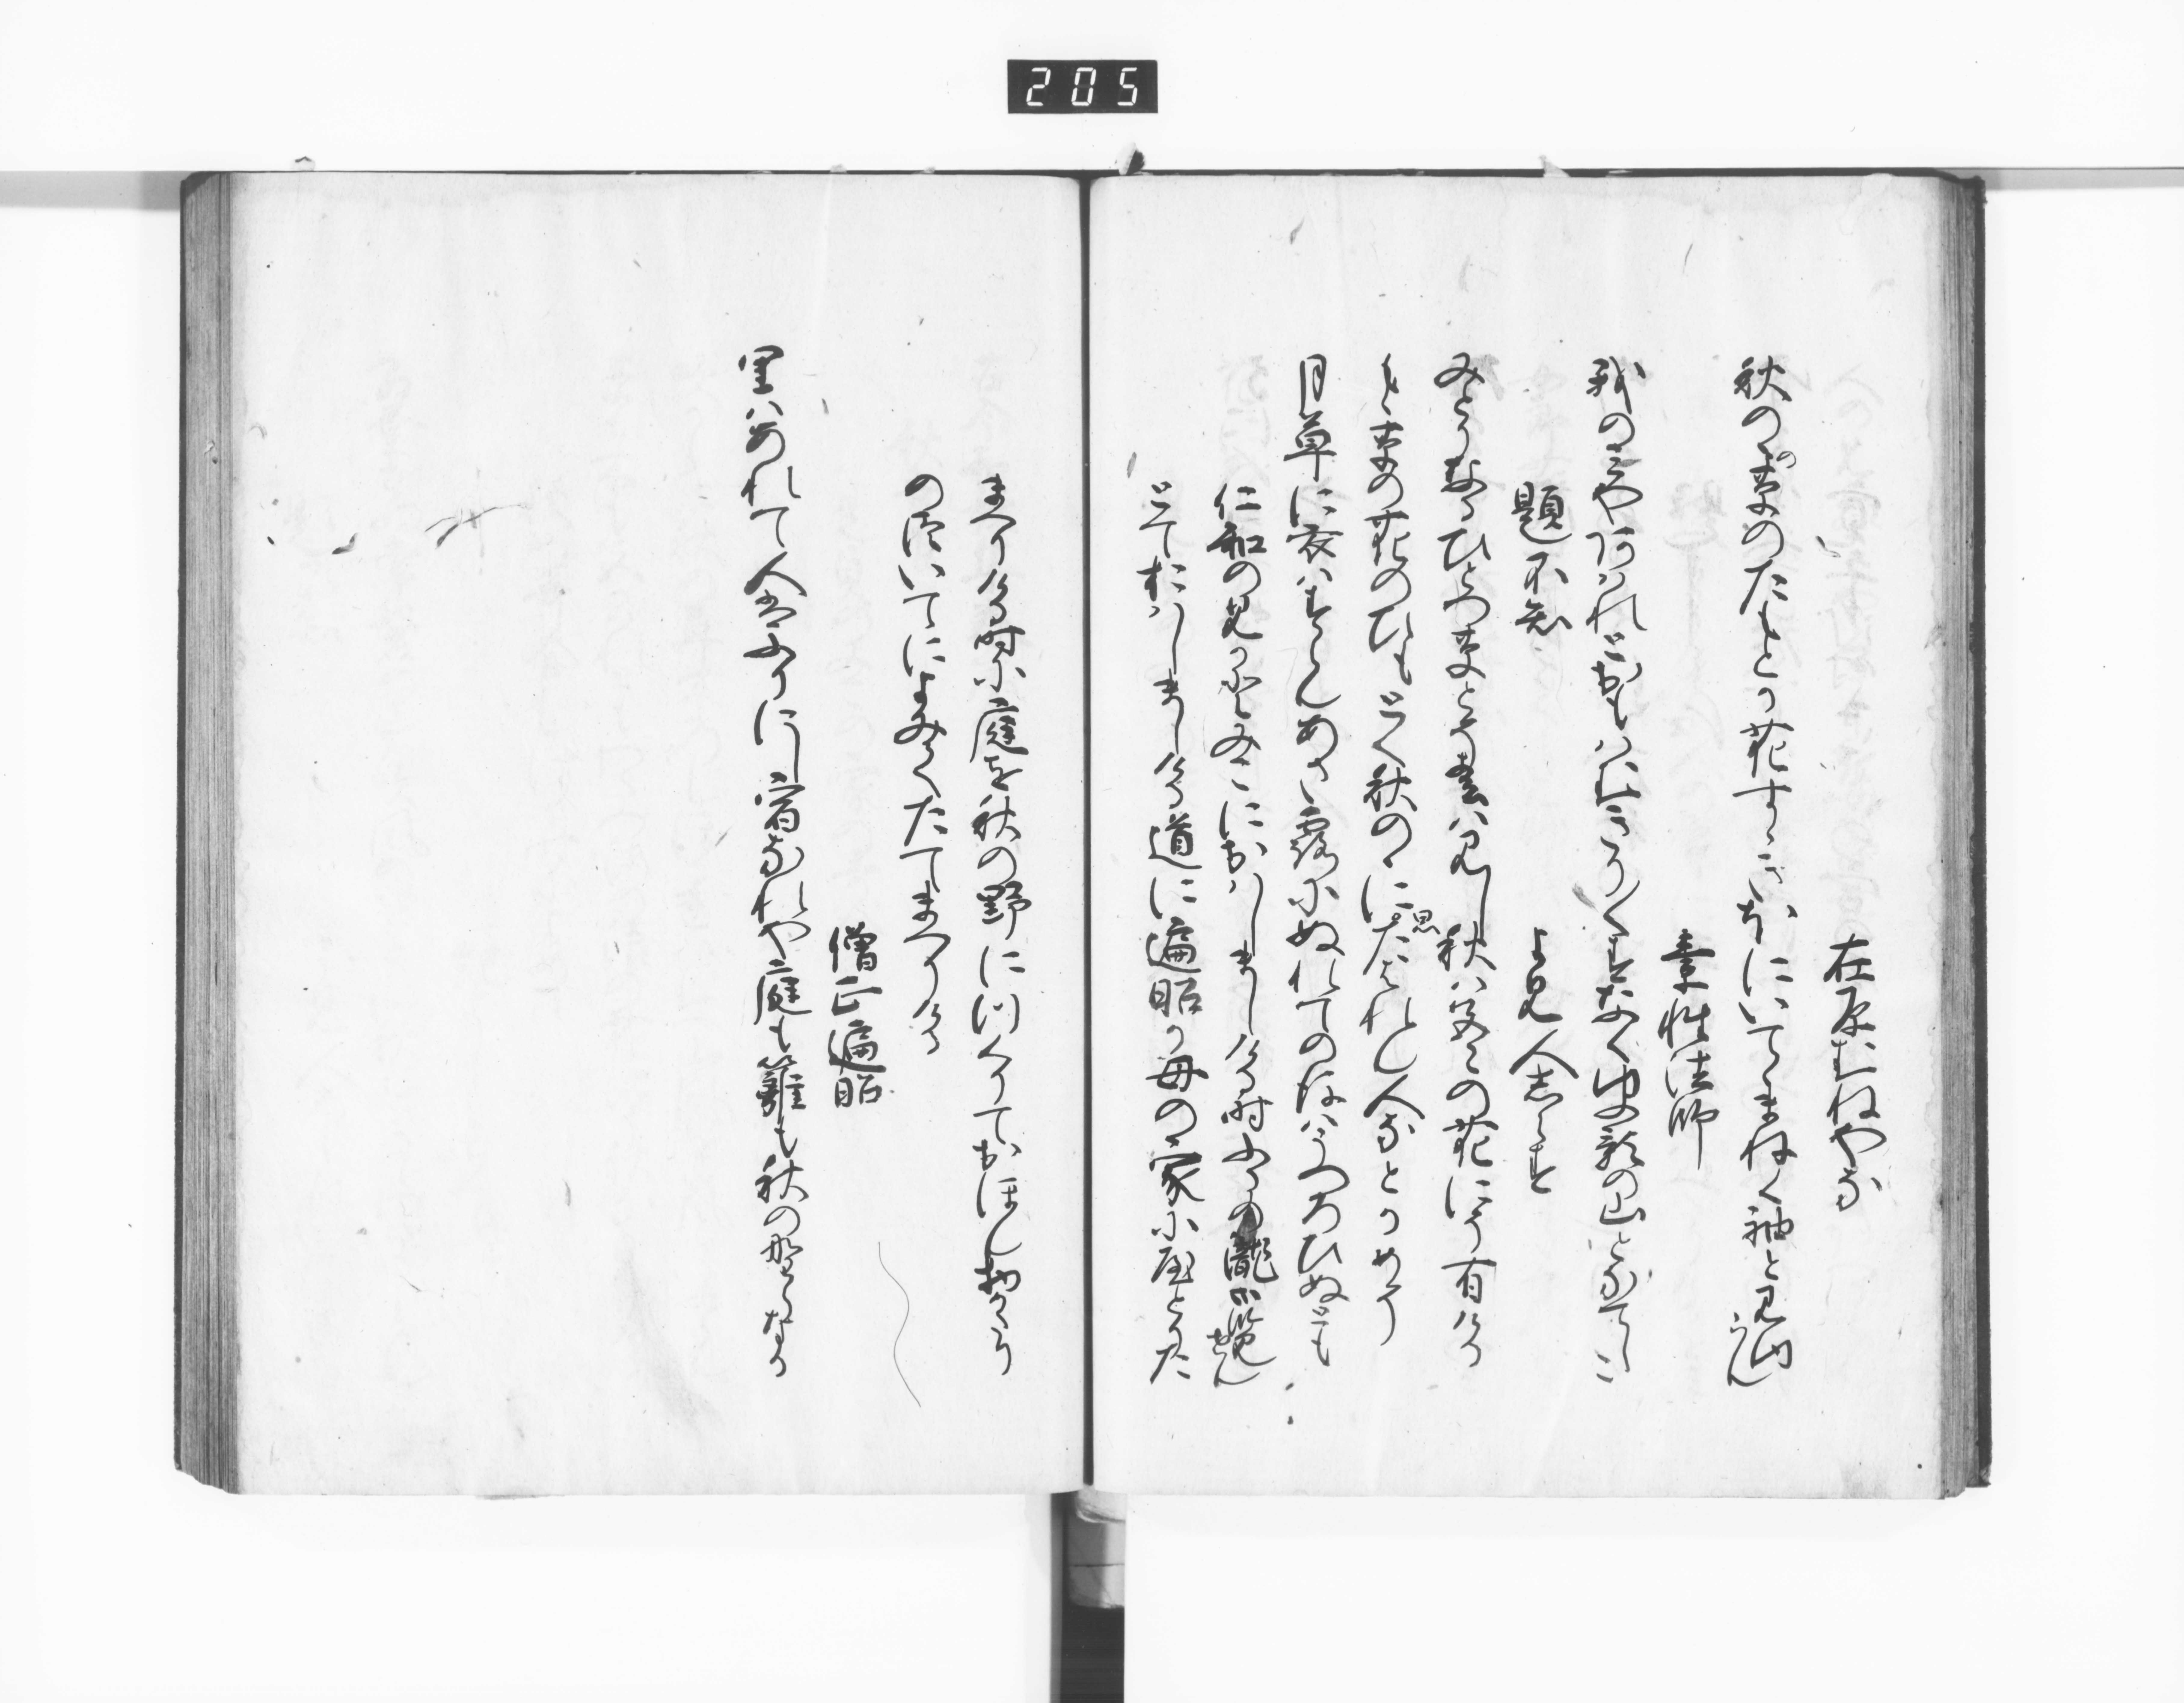 205
在原むねやな
秋のゝ草のたもとか花すゝきほにいてゝまねく袖と見ゆ
らん
素性法師
我のみやあはれとおもはむきり〳〵すなく夕影の山となてしこ
題不知
よみ人しらす
みとりなるひとつ草とそ春は見し秋は色々の花にそ有ける
もゝ草の花のひもとく秋のゝに思たはれん人なとかめそ
月草に衣はすらんあさ露にぬれてのゝちはうつろひぬとも
仁和の見かとみこにおはしましける時ふるの瀧御覧
せん
とておはしましける道に遍昭か母の家に屋とりた
まへりける時に庭を秋の野につくりておほん物かたり
のつゐてによみてたてまつりける
僧正遍昭
里はあれて人はふりにし宿なれや庭も籬も秋の野らなる